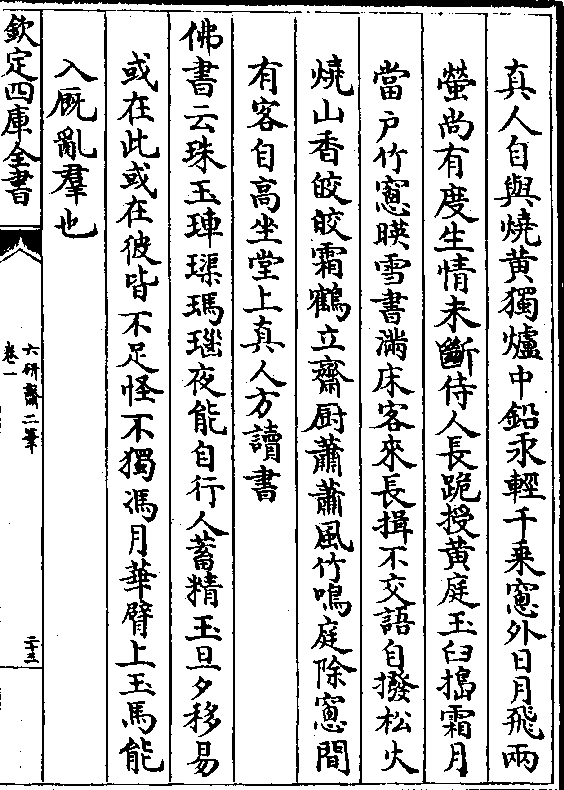 真人自與燒黄獨爐中鉛汞輕千乘窻外日月飛兩
螢尚有度生情未斷侍人長跪授黄庭玉臼搗霜月
當户竹窻暎雪書滿床客來長揖不交語自撥松火
燒山香皎皎霜鶴立齋厨蕭蕭風竹鳴庭除窻間
有客自高坐堂上真人方讀書
佛書云珠玉琿璖瑪瑙夜能自行人蓄精玉旦夕移易
或在此或在彼皆不足怪不獨馮月華臂上玉馬能
入厩亂羣也
欽定四庫全書
六研齋二筆
卷一
二十三